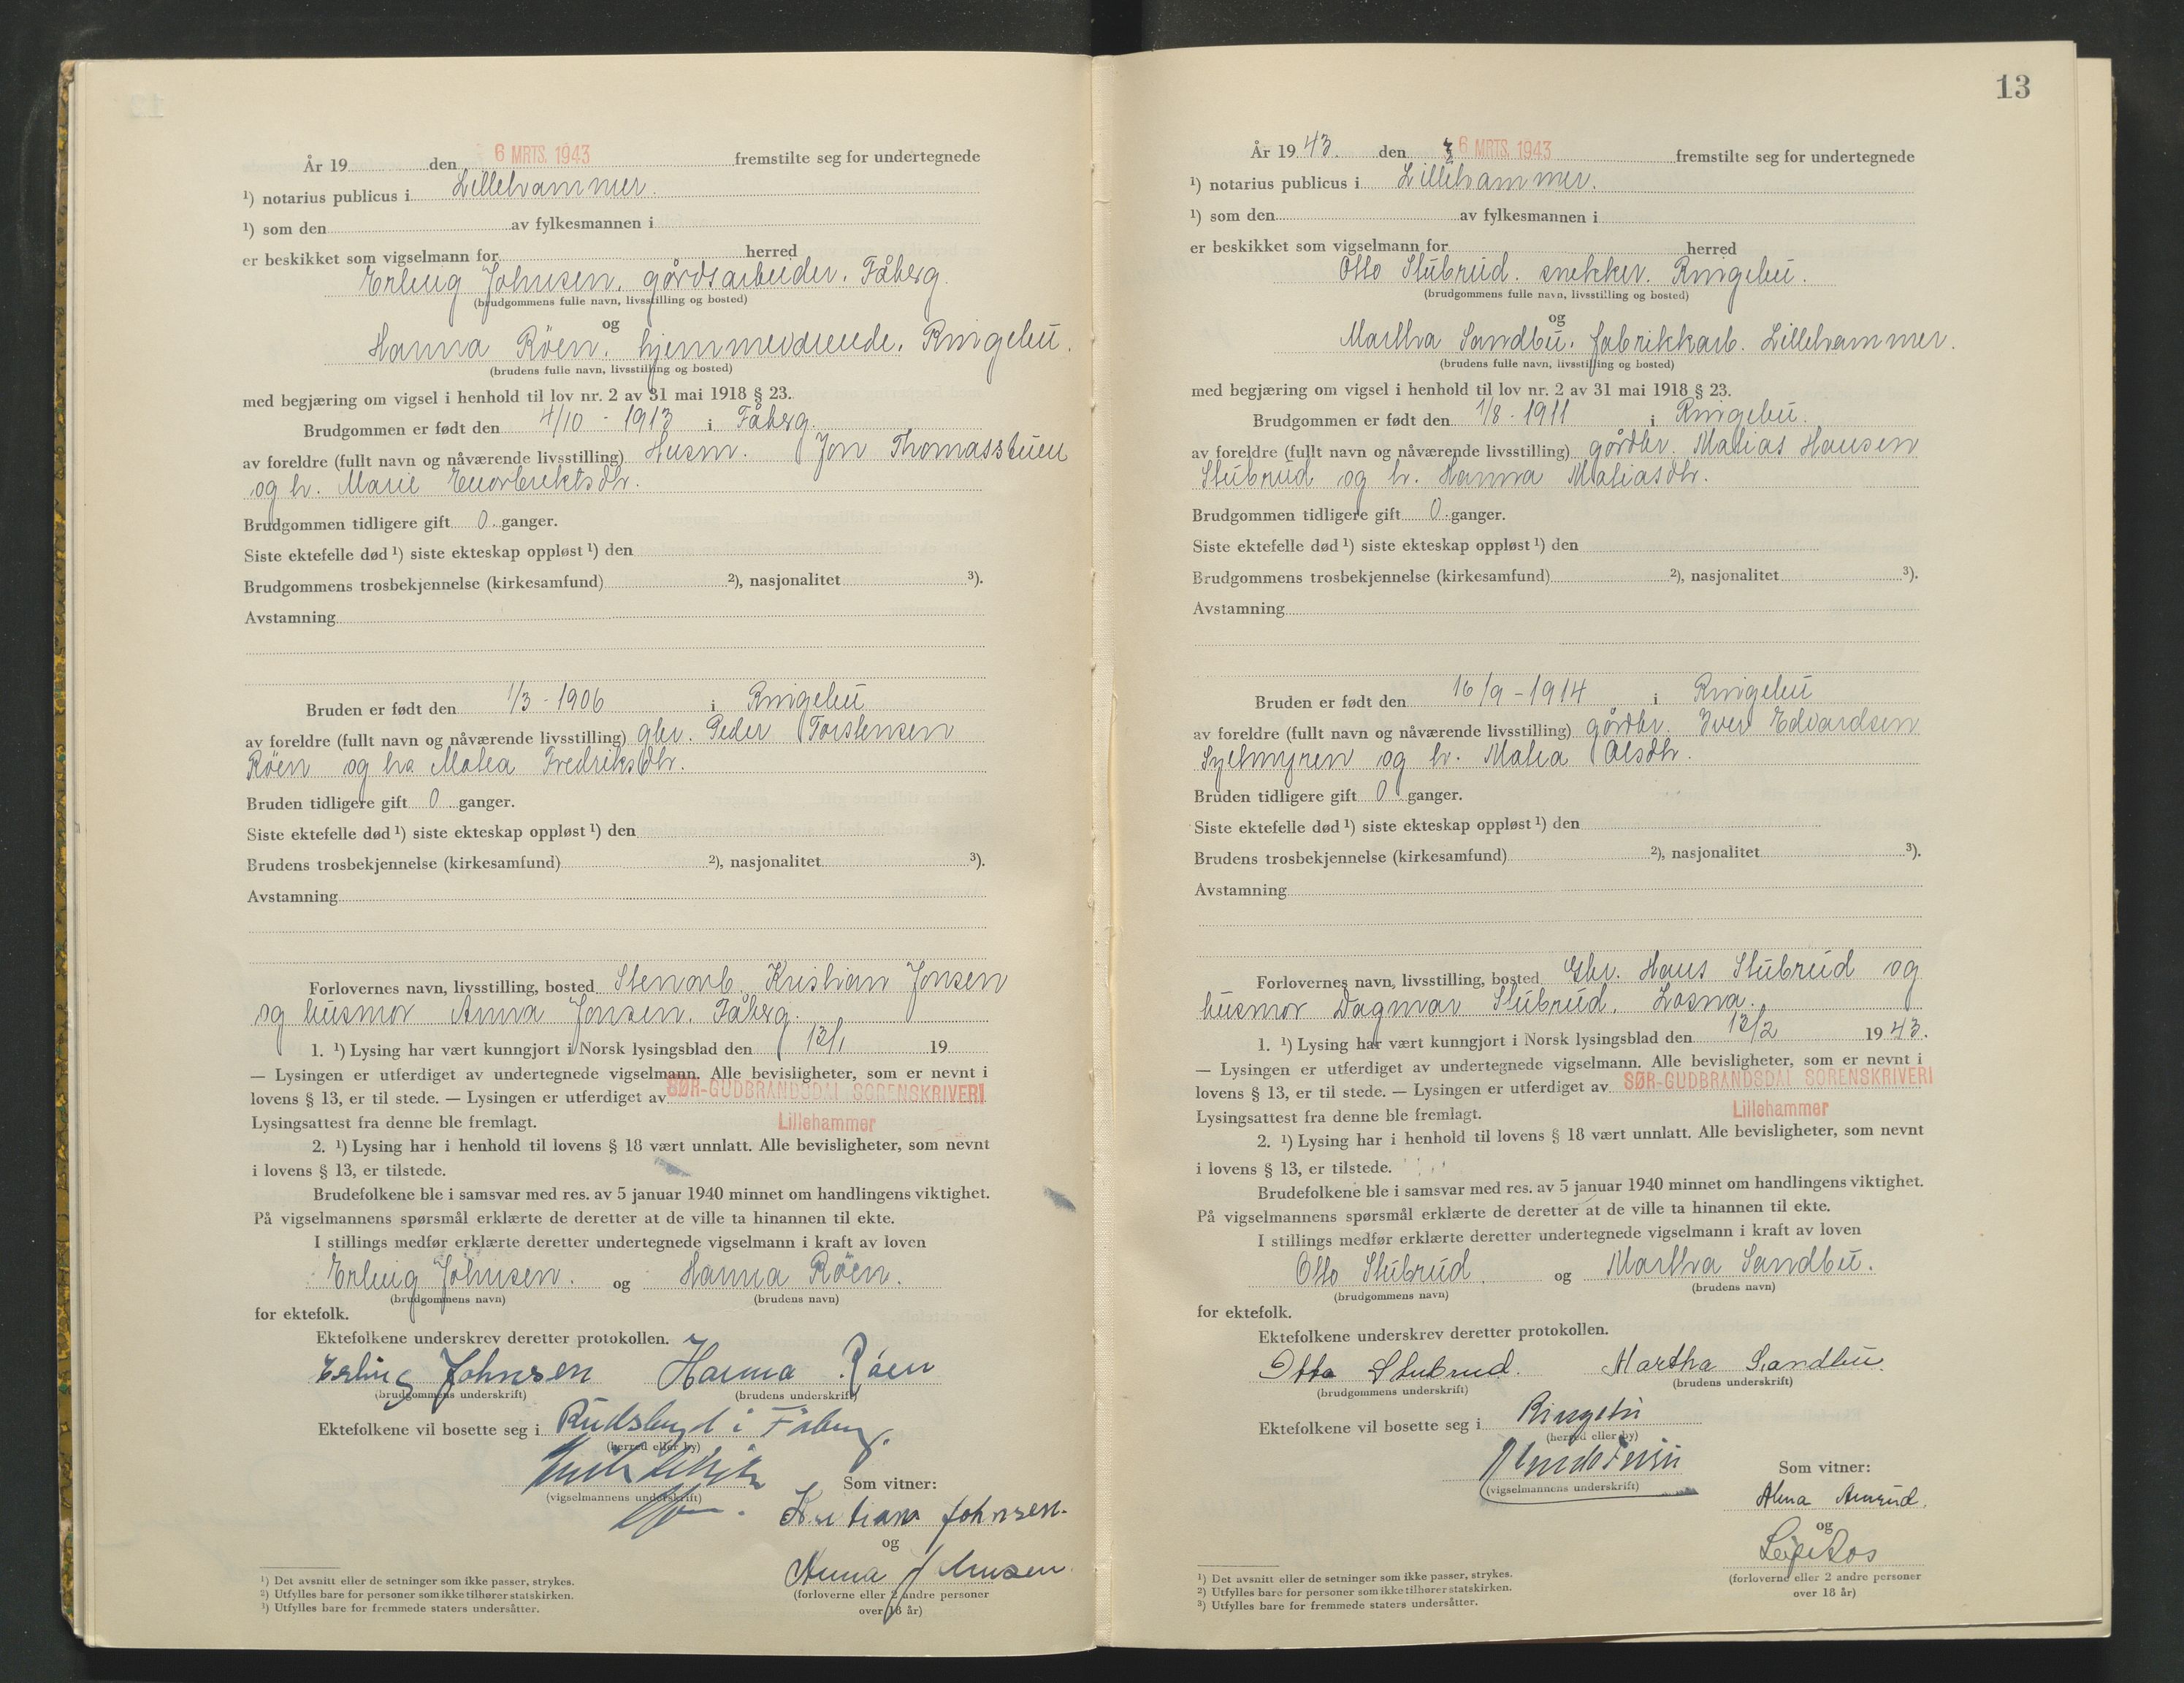 År 19 den 6 MRTS. 1943 fremstilte seg for undertegnede
¹) notarius publicus i Lillehammer.
¹) som den av fylkesmannen i
er beskikket som vigselmann for herred
Erling Johnsen, gårdsarbeider, Fåberg.
(brudgommens fulle navn, livsstilling og bosted)
og
Hanna Röen, hjemmeværende, Ringebu.
(brudens fulle navn, livsstilling og bosted)
med begjæring om vigsel i henhold til lov nr. 2 av 31 mai 1918 § 23.
Brudgommen er født den 4/10 - 1913 i Fåberg.
av foreldre (fullt navn og nåværende livsstilling) Husm. Jon Thomasstuen
og h. Marie
Brudgommen tidligere gift 0 ganger.
Siste ektefelle død ¹) siste ekteskap oppløst ¹) den
Brudgommens trosbekjennelse (kirkesamfund) ²), nasjonalitet ³).
Avstamning
Bruden er født den 1/3 - 1906 i Ringebu
av foreldre (fullt navn og nåværende livsstilling) gbr. Peder Torstensen
Röen og h. Matea Fredriksdtr.
Bruden tidligere gift 0 ganger.
Siste ektefelle død ¹) siste ekteskap oppløst ¹) den
Brudens trosbekjennelse (kirkesamfund) ²), nasjonalitet ³).
Avstamning
Forlovernes navn, livsstilling, bosted Stenarb. Kristian Jonsen
og husmor Anna Jonsen, Fåberg.
1. ¹) Lysing har vært kunngjort i Norsk lysingsblad den 13/1 19
— Lysingen er utferdiget av undertegnede vigselmann. Alle bevisligheter, som er nevnt i
lovens § 13, er til stede. — Lysingen er utferdiget av SØR-GUDBRANDSDAL SORENSKRIVERI
Lysingsattest fra denne ble fremlagt. Lillehammer
2. ¹) Lysing har i henhold til lovens § 18 vært unnlatt. Alle bevisligheter, som nevnt
i lovens § 13, er tilstede.
Brudefolkene ble i samsvar med res. av 5 januar 1940 minnet om handlingens viktighet.
På vigselmannens spørsmål erklærte de deretter at de ville ta hinannen til ekte.
I stillings medfør erklærte deretter undertegnede vigselmann i kraft av loven
Erling Johnsen. og Hanna Röen.
(brudgommens navn) (brudens navn)
for ektefolk.
Ektefolkene underskrev deretter protokollen.
Erling Johnsen Hanna Röen
(brudgommens underskrift) (brudens underskrift)
Ektefolkene vil bosette seg i Rudsbygd i Fåberg.
(herred eller by)
Som vitner:
(vigselmannens underskrift)
Kristian Johnsen.
og
Anna Johnsen
(forloverne eller 2 andre personer
over 18 år)
¹) Det avsnitt eller de setninger som ikke passer, strykes.
²) Utfylles bare for personer som ikke tilhører statskirken.
³) Utfylles bare for fremmede staters undersåtter.
13
År 1943. den 6 MRTS. 1943 fremstilte seg for undertegnede
¹) notarius publicus i Lillehammer.
¹) som den av fylkesmannen i
er beskikket som vigselmann for herred
Otto Stubrud, snekker, Ringebu.
(brudgommens fulle navn, livsstilling og bosted)
og
Martha Sandbu, fabrikkarb. Lillehammer.
(brudens fulle navn, livsstilling og bosted)
med begjæring om vigsel i henhold til lov nr. 2 av 31 mai 1918 § 23.
Brudgommen er født den 1/8 - 1911 i Ringebu.
av foreldre (fullt navn og nåværende livsstilling) gårdbr. Matias Hansen
Stubrud og h. Hanna Matiasdtr.
Brudgommen tidligere gift 0 ganger.
Siste ektefelle død ¹) siste ekteskap oppløst ¹) den
Brudgommens trosbekjennelse (kirkesamfund) ²), nasjonalitet ³).
Avstamning
Bruden er født den 16/9 - 1914 i Ringebu
av foreldre (fullt navn og nåværende livsstilling) gårdbr. Iver Edvardsen
og h. Matea Olsdtr.
Bruden tidligere gift 0 ganger.
Siste ektefelle død ¹) siste ekteskap oppløst ¹) den
Brudens trosbekjennelse (kirkesamfund) ²), nasjonalitet ³).
Avstamning
Forlovernes navn, livsstilling, bosted Gbr. Hans Stubrud og
husmor Dagmar Stubrud, Losna.
1. ¹) Lysing har vært kunngjort i Norsk lysingsblad den 12/2 1943.
— Lysingen er utferdiget av undertegnede vigselmann. Alle bevisligheter, som er nevnt i
lovens § 13, er til stede. — Lysingen er utferdiget av SØR-GUDBRANDSDAL SORENSKRIVERI
Lysingsattest fra denne ble fremlagt. Lillehammer
2. ¹) Lysing har i henhold til lovens § 18 vært unnlatt. Alle bevisligheter, som nevnt
i lovens § 13, er tilstede.
Brudefolkene ble i samsvar med res. av 5 januar 1940 minnet om handlingens viktighet.
På vigselmannens spørsmål erklærte de deretter at de ville ta hinannen til ekte.
I stillings medfør erklærte deretter undertegnede vigselmann i kraft av loven
Otto Stubrud. og Martha Sandbu.
(brudgommens navn) (brudens navn)
for ektefolk.
Ektefolkene underskrev deretter protokollen.
Otto Stubrud. Martha Sandbu.
(brudgommens underskrift) (brudens underskrift)
Ektefolkene vil bosette seg i Ringebu
(herred eller by)
Som vitner:
(vigselmannens underskrift)
Alma Amrud.
og
Leif
(forloverne eller 2 andre personer
over 18 år)
¹) Det avsnitt eller de setninger som ikke passer, strykes.
²) Utfylles bare for personer som ikke tilhører statskirken.
³) Utfylles bare for fremmede staters undersåtter.